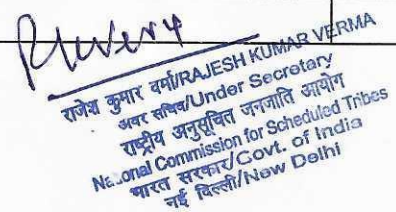 राजेश कुमार वर्मा/RAJESH KUMAR VERMA
अवर सचिव/Under Secretary
राष्ट्रीय अनुसूचित जनजाति आयोग
Commission for Scheduled Tribes
भारत सरकार/Govt. of India
नई दिल्ली/New Delhi